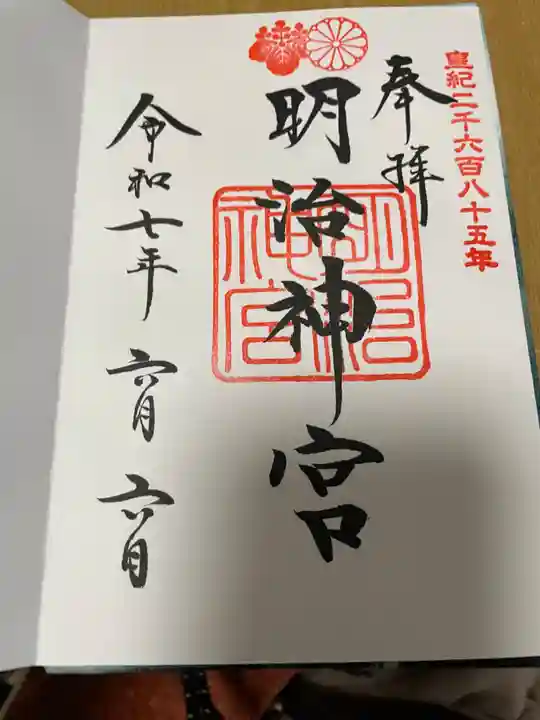 皇紀二千六百八十五年
奉拝
明治神宮
明治神宮
令和七年六月六日